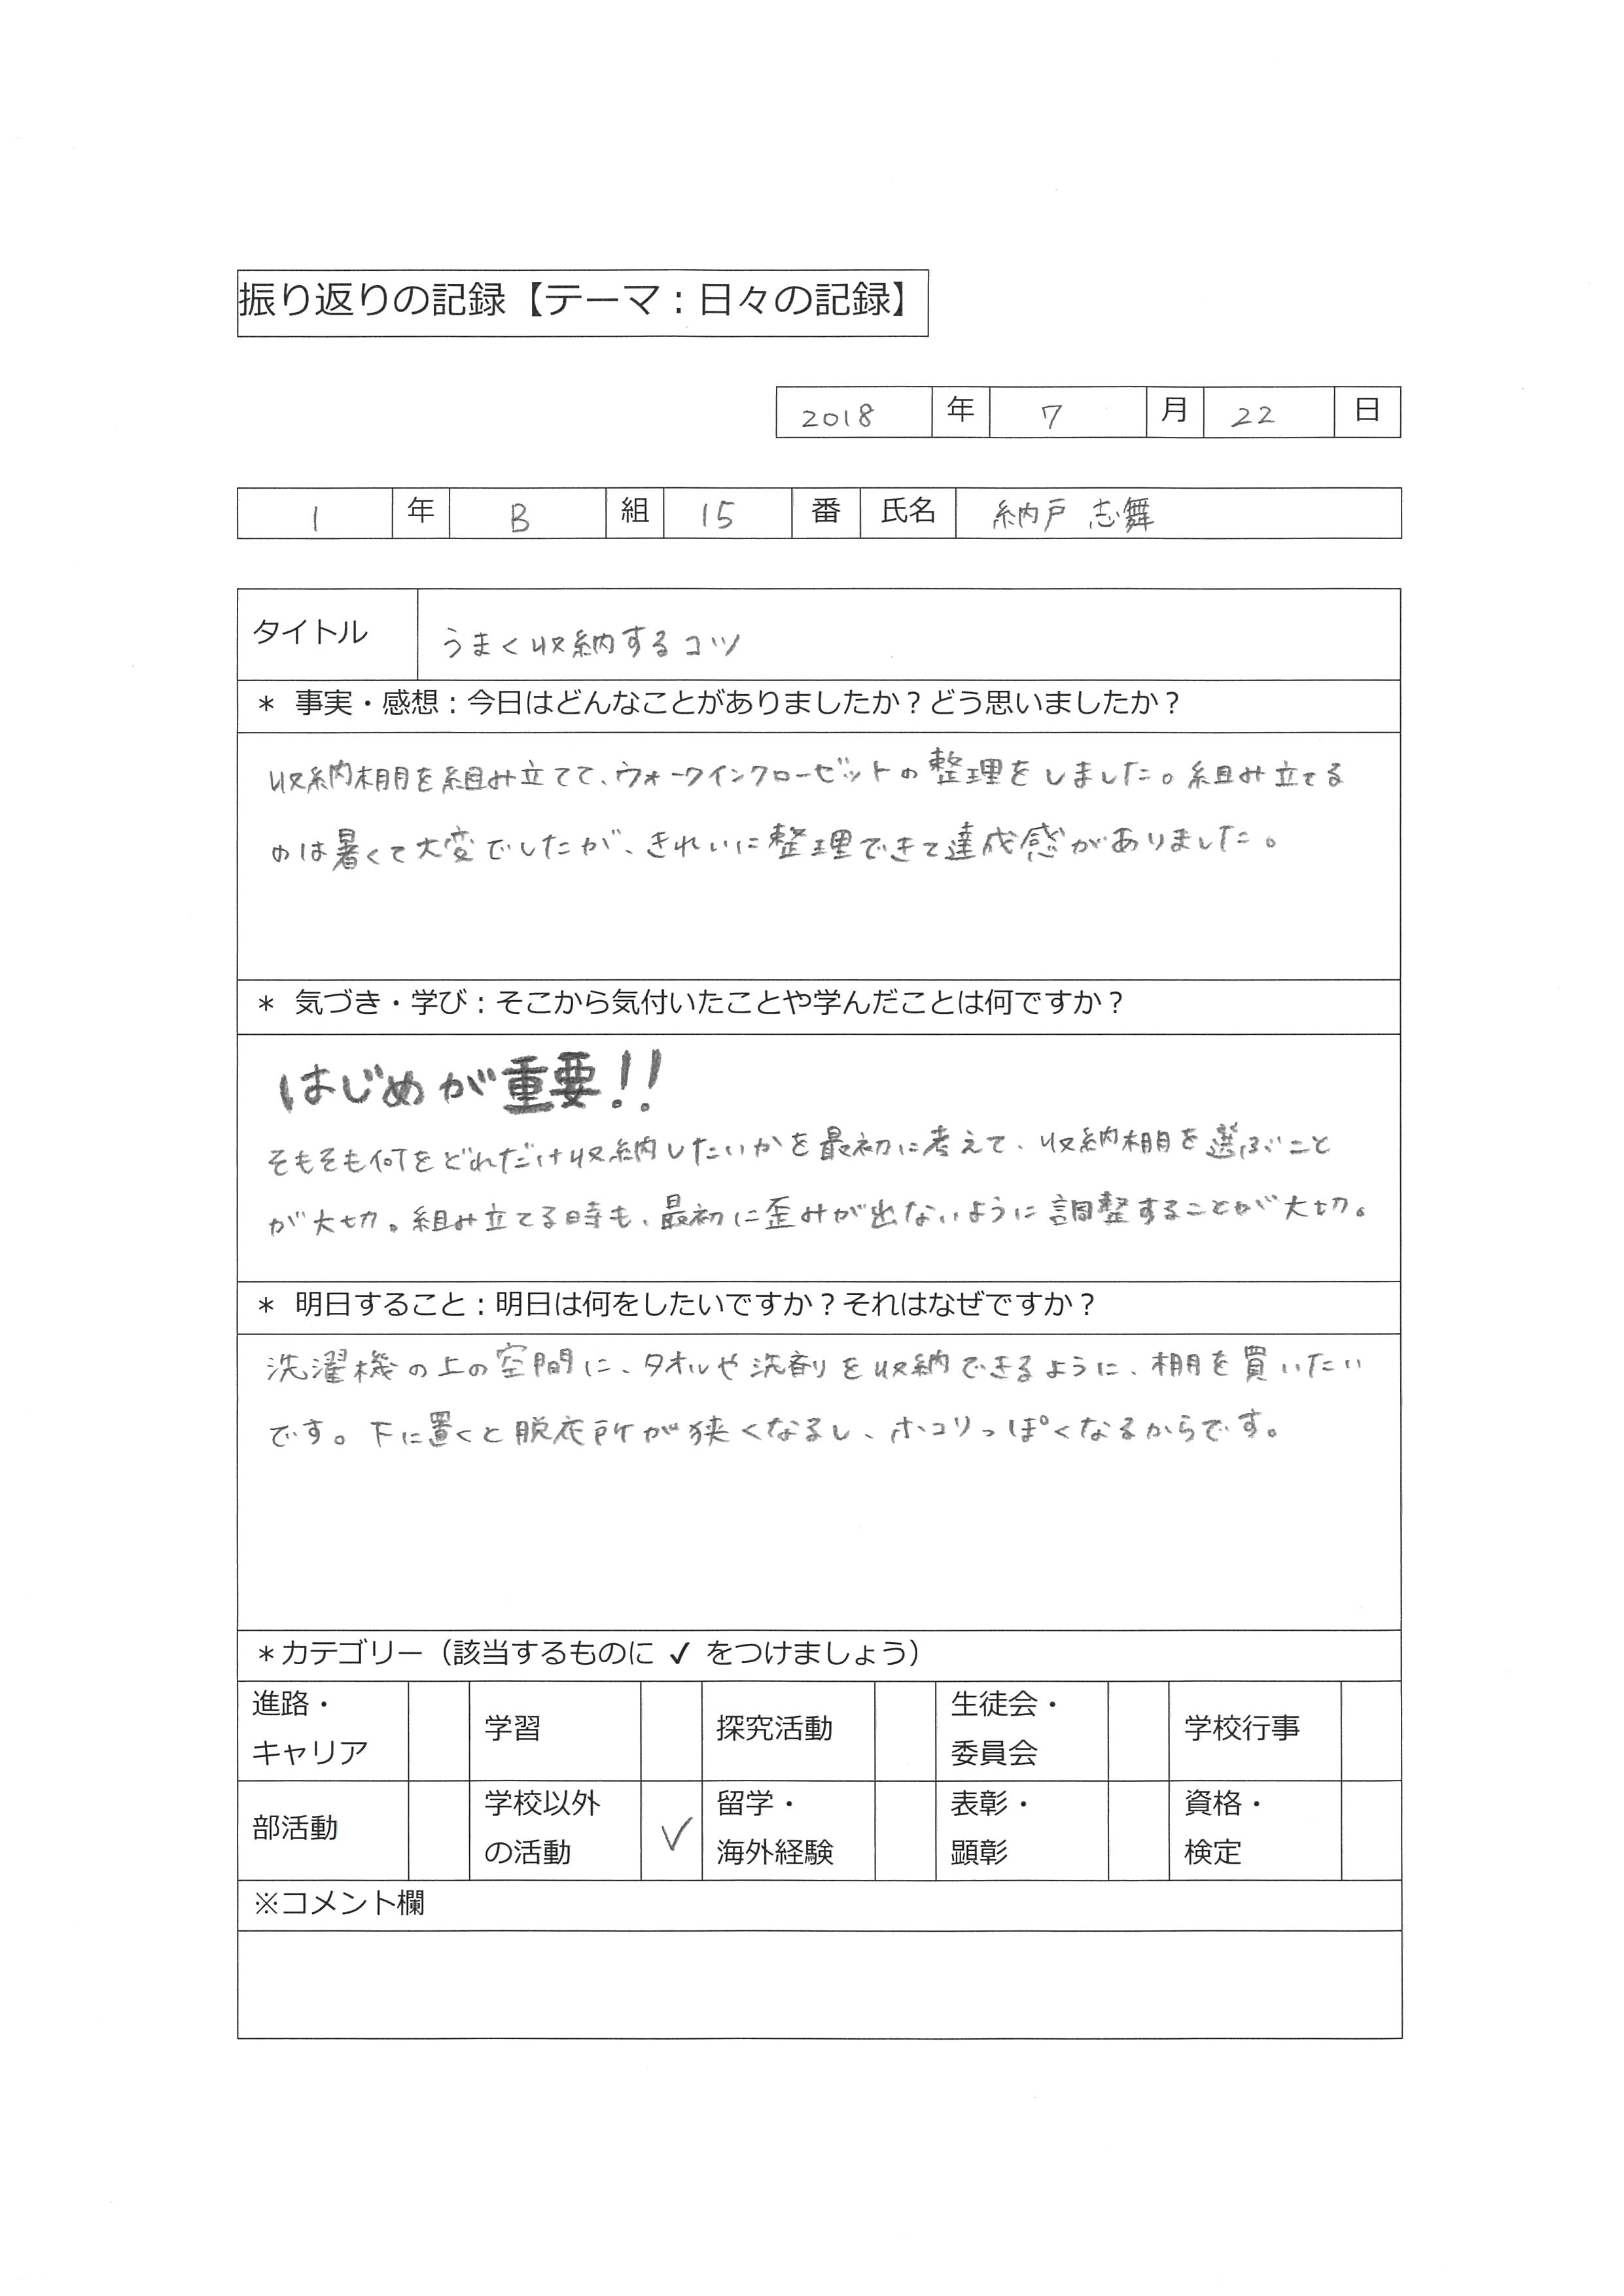 振り返りの記録【テーマ：日々の記録】
2018 年 7 月 22 日
1 年 B 組 15 番 氏名 納戸 志舞
タイトル うまく収納するコツ
＊ 事実・感想：今日はどんなことがありましたか？どう思いましたか？
収納棚を組み立てて、ウォークインクローゼットの整理をしました。組み立てる
のは暑くて大変でしたが、きれいに整理できて達成感がありました。
＊ 気づき・学び：そこから気付いたことや学んだことは何ですか？
はじめが重要！！
そもそも何をどれだけ収納したいかを最初に考えて、収納棚を選ぶこと
が大切。組み立てる時も、最初に歪みが出ないように調整することが大切。
＊ 明日すること：明日は何をしたいですか？それはなぜですか？
洗濯機の上の空間に、タオルや洗剤を収納できるように、棚を買いたい
です。下に置くと脱衣所が狭くなるし、ホコリっぽくなるからです。
＊カテゴリー（該当するものに ✓ をつけましょう）
進路・
キャリア
学習
探究活動
生徒会・
委員会
学校行事
部活動
学校以外
の活動
✓
留学・
海外経験
表彰・
顕彰
資格・
検定
※コメント欄